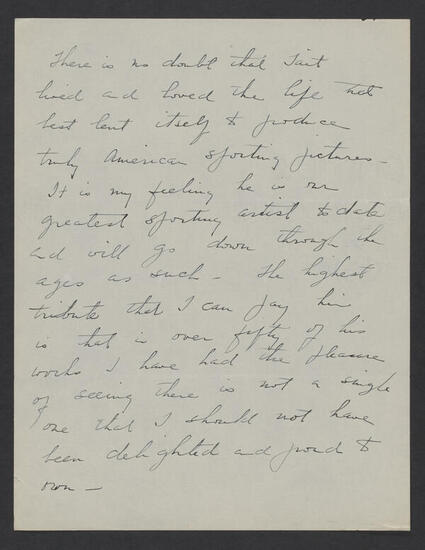 There is no doubt that Tait
lived and loved the life that
best lent itself to produce
truly American sporting pictures -
It is my feeling he is our
greatest sporting artist to date
and will go down through the
ages as such - The highest
tribute that I can pay him
is that in over fifty of his
works I have had the pleasure
of seeing there is not a single
one that I should not have
been delighted and proud to
own -